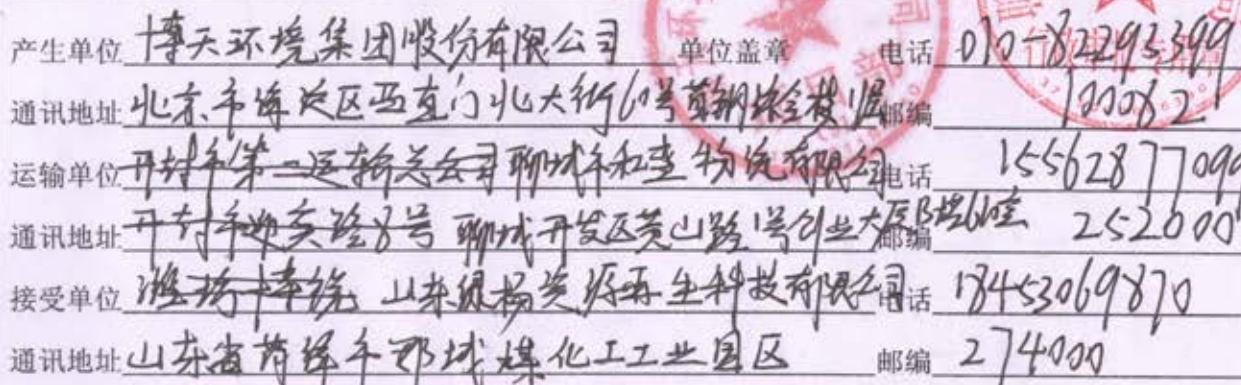 产生单位 博天环境集团股份有限公司 单位盖章 电话 010-82293399
通讯地址 北京市海淀区西直门北大街60号首钢综合楼 邮编 100082
运输单位 开封市第一运输总公司 聊城市和圭物流有限公司 电话 15562877099
通讯地址 开封市迎宾路8号 聊城开发区黄山路1号创业大厦B 邮编 252000
接受单位 山东绿杨资源再生科技有限公司 电话 18453069870
通讯地址 山东省菏泽市郓城煤化工工业园区 邮编 274000